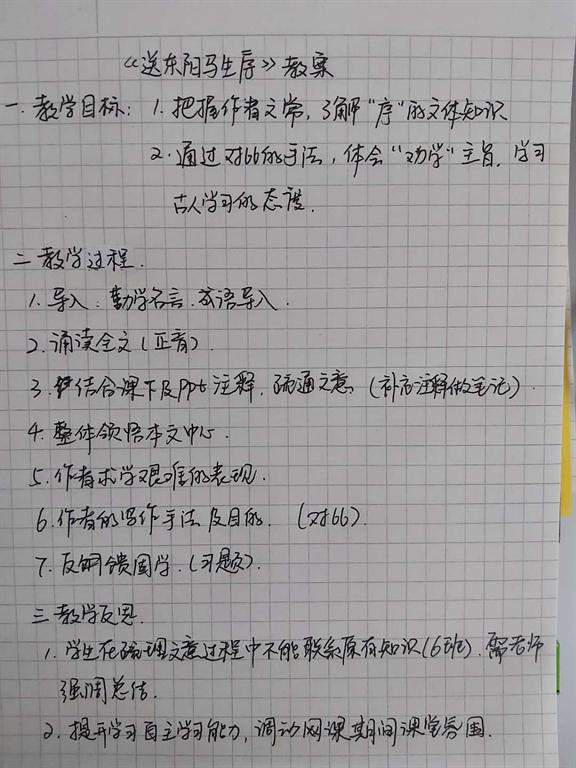 《送东阳马生序》教案
一.教学目标: 1.把握作者文常,了解“序”的文体知识
2.通过对比的手法,体会“劝学”主旨.学习
古人学习的态度.
二 教学过程.
1.导入:勤学名言.成语导入.
2.诵读全文(正音).
3.结合课下及ppt注释.疏通文意.(补充注释做笔记).
4.整体领悟本文中心.
5.作者求学艰难的表现.
6.作者的写作手法及目的.(对比).
7.反馈固学.(习题).
三 教学反思.
1.学生在疏理文意过程中不能联系原有知识(6班).需老师
强调总结.
2.提升学习自主学习能力,调动网课期间课堂氛围.